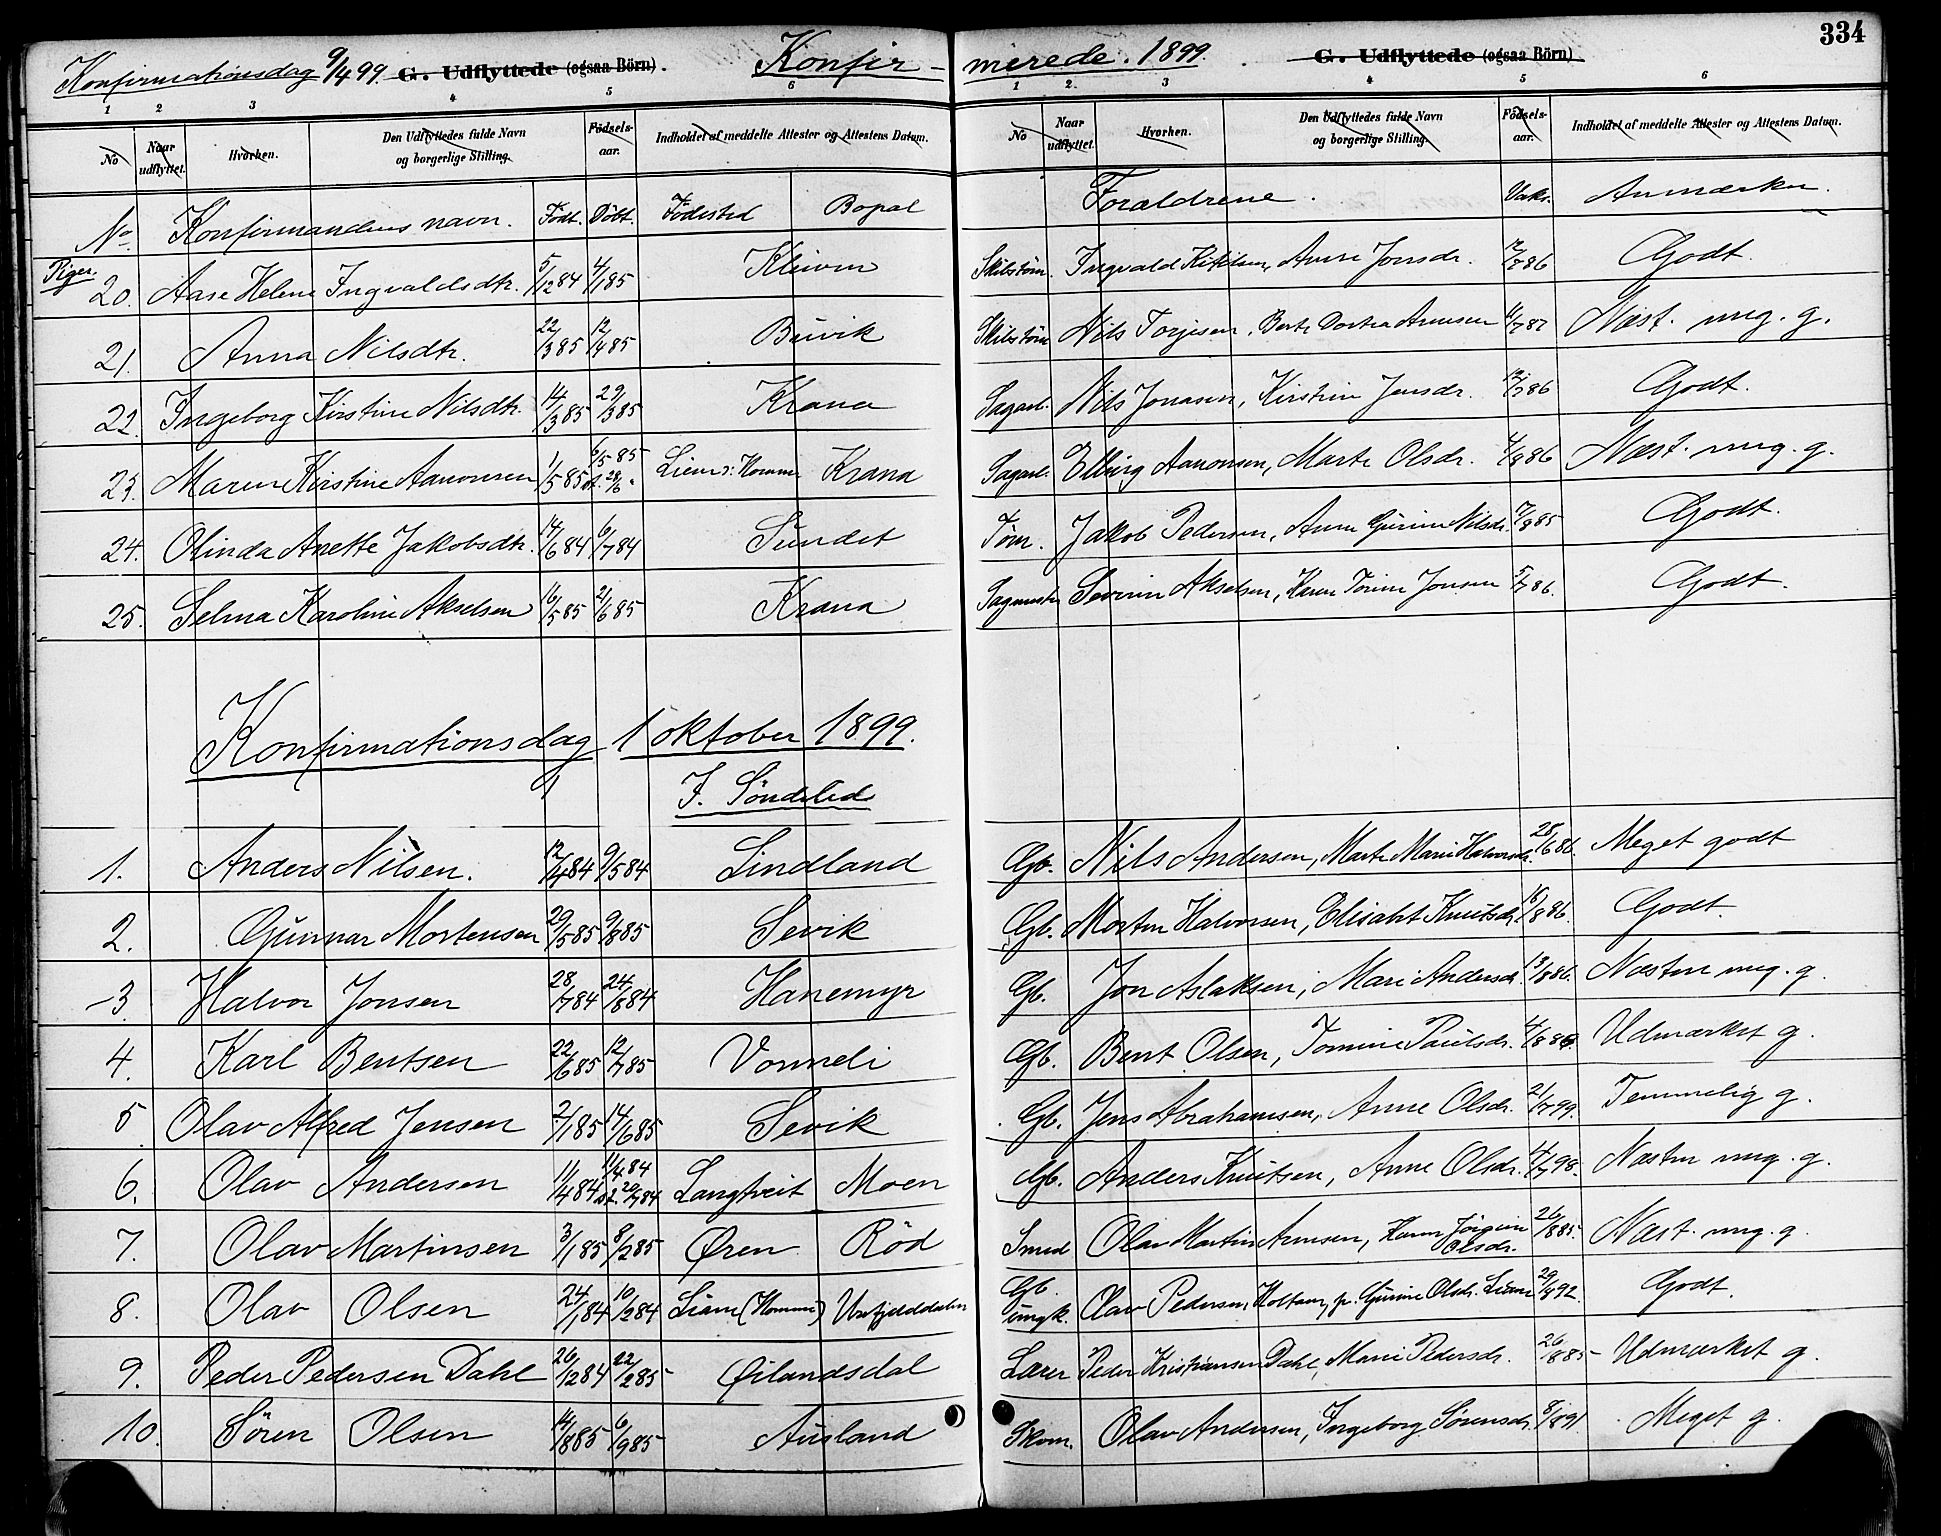 334
Konfirmationsdag 9/4 99. G. Udflyttede (ogsaa Börn). Konfir- merede. 1899. G. Udflyttede (ogsaa Börn)
1 2 3 4 5 6 1 2. 3 4 5 6
No Naar udflyttet. Hvorhen. Den Udflyttedes fulde Navn og borgerlige Stilling. Födsels-aar. Indholdet af meddelte Attester og Attestens Datum. No Naar udflyttet. Hvorhen. Den Udflyttedes fulde Navn og borgerlige Stilling. Födsels-aar. Indholdet af meddelte Attester og Attestens Datum.
No. Konfirmandens navn. Födt. Döbt. Födested Bopal Foraldrene. Vaks. Anmærkn.
Piger.
20. Aase Helene Ingvaldsdtr. 5/12 84 4/1 85 Kleiven Skibstöm. Ingvald Kittilsen, Anne Jonsdr. 2/8 86 Godt.
21. Anna Nilsdtr. 22/3 85 12/4 85 Buvik Skibstöm. Nils Torjesen, Berte Dortea Arnesen 11/7 87 Næst. meg. g.
22. Ingeborg Kirstine Nilsdtr. 14/3 85 29/3 85 Krana Sagarb. Nils Jonasen, Kirstine Jensdr. 12/7 86 Godt.
23. Maren Kirstine Aanonsen 1/5 85 6/5 85 st. 28/6 Liene i Homme Krana Sagarb. Elling Aanonsen, Marte Olsdr. 4/8 86 Næst. meg. g.
24. Olinda Anette Jakobsdtr. 14/6 84 6/7 84 Sundet Töm. Jakob Pedersen, Anne Gurine Nilsdr. 7/9 85 Godt.
25. Selma Karoline Akselsen 16/5 85 21/6 85 Krana Sagmester Severin Akselsen, Karen Torine Jonsen 5/7 86. Godt.
Konfirmationsdag 1 oktober 1899.
I. Söndeled
1. Anders Nilsen. 12/4 84 9/5 84 Lindland Gb. Nils Andersen, Marte Marie Halvorsdr. 28/6 86. Meget godt
2. Gunnar Mortensen 29/5 85 9/8 85 Sevik Gb. Morten Halvorsen, Elisabet Knutsdr. 16/8 86. Godt.
3 Halvor Jonsen 28/7 84 24/8 84 Hanemyr Gb. Jon Aslaksen, Mari Andersdr. 13/8 86. Næsten meg. g.
4. Karl Bentsen 22/6 85 12/7 85 Vormeli Gb. Bent Olsen, Tomine Paulsdr. 4/8 86. Udmærket g.
5. Olav Alfred Jensen 2/1 85 14/6 85 Sevik Gb. Jens Abrahamsen, Anne Olsdr. 21/7 99. Temmelig g.
6. Olav Andersen 11/4 84 11/4 84 st. 20/7 84 Langtveit Moen Gb. Anders Knutsen, Anne Olsdr. 4/7 98. Næsten meg. g.
7. Olav Martinsen 3/1 85 8/2 85 Øren Röd Smed Olav Martin Arnesen, Karen Jörgine Olsdr. 26/8 85. Næst. meg. g.
8. Olav Olsen 24/1 84 10/2 84 Liane (Homme) Urefjelddalen Gb. ungk. Olav Pedersen, Holtane, p. Gurine Olsdr. Liane 29/9 92. Godt.
9. Peder Pedersen Dahl 26/12 84 22/2 85 Øilandsdal Lærer Peder Kristiansen Dahl, Marie Pedersdr. 26/8 85 Udmærket g.
10. Sören Olsen 14/8 85 6/9 85 Ausland Skom. Olav Andersen, Ingeborg Sörensdr. 8/8 91. Meget g.